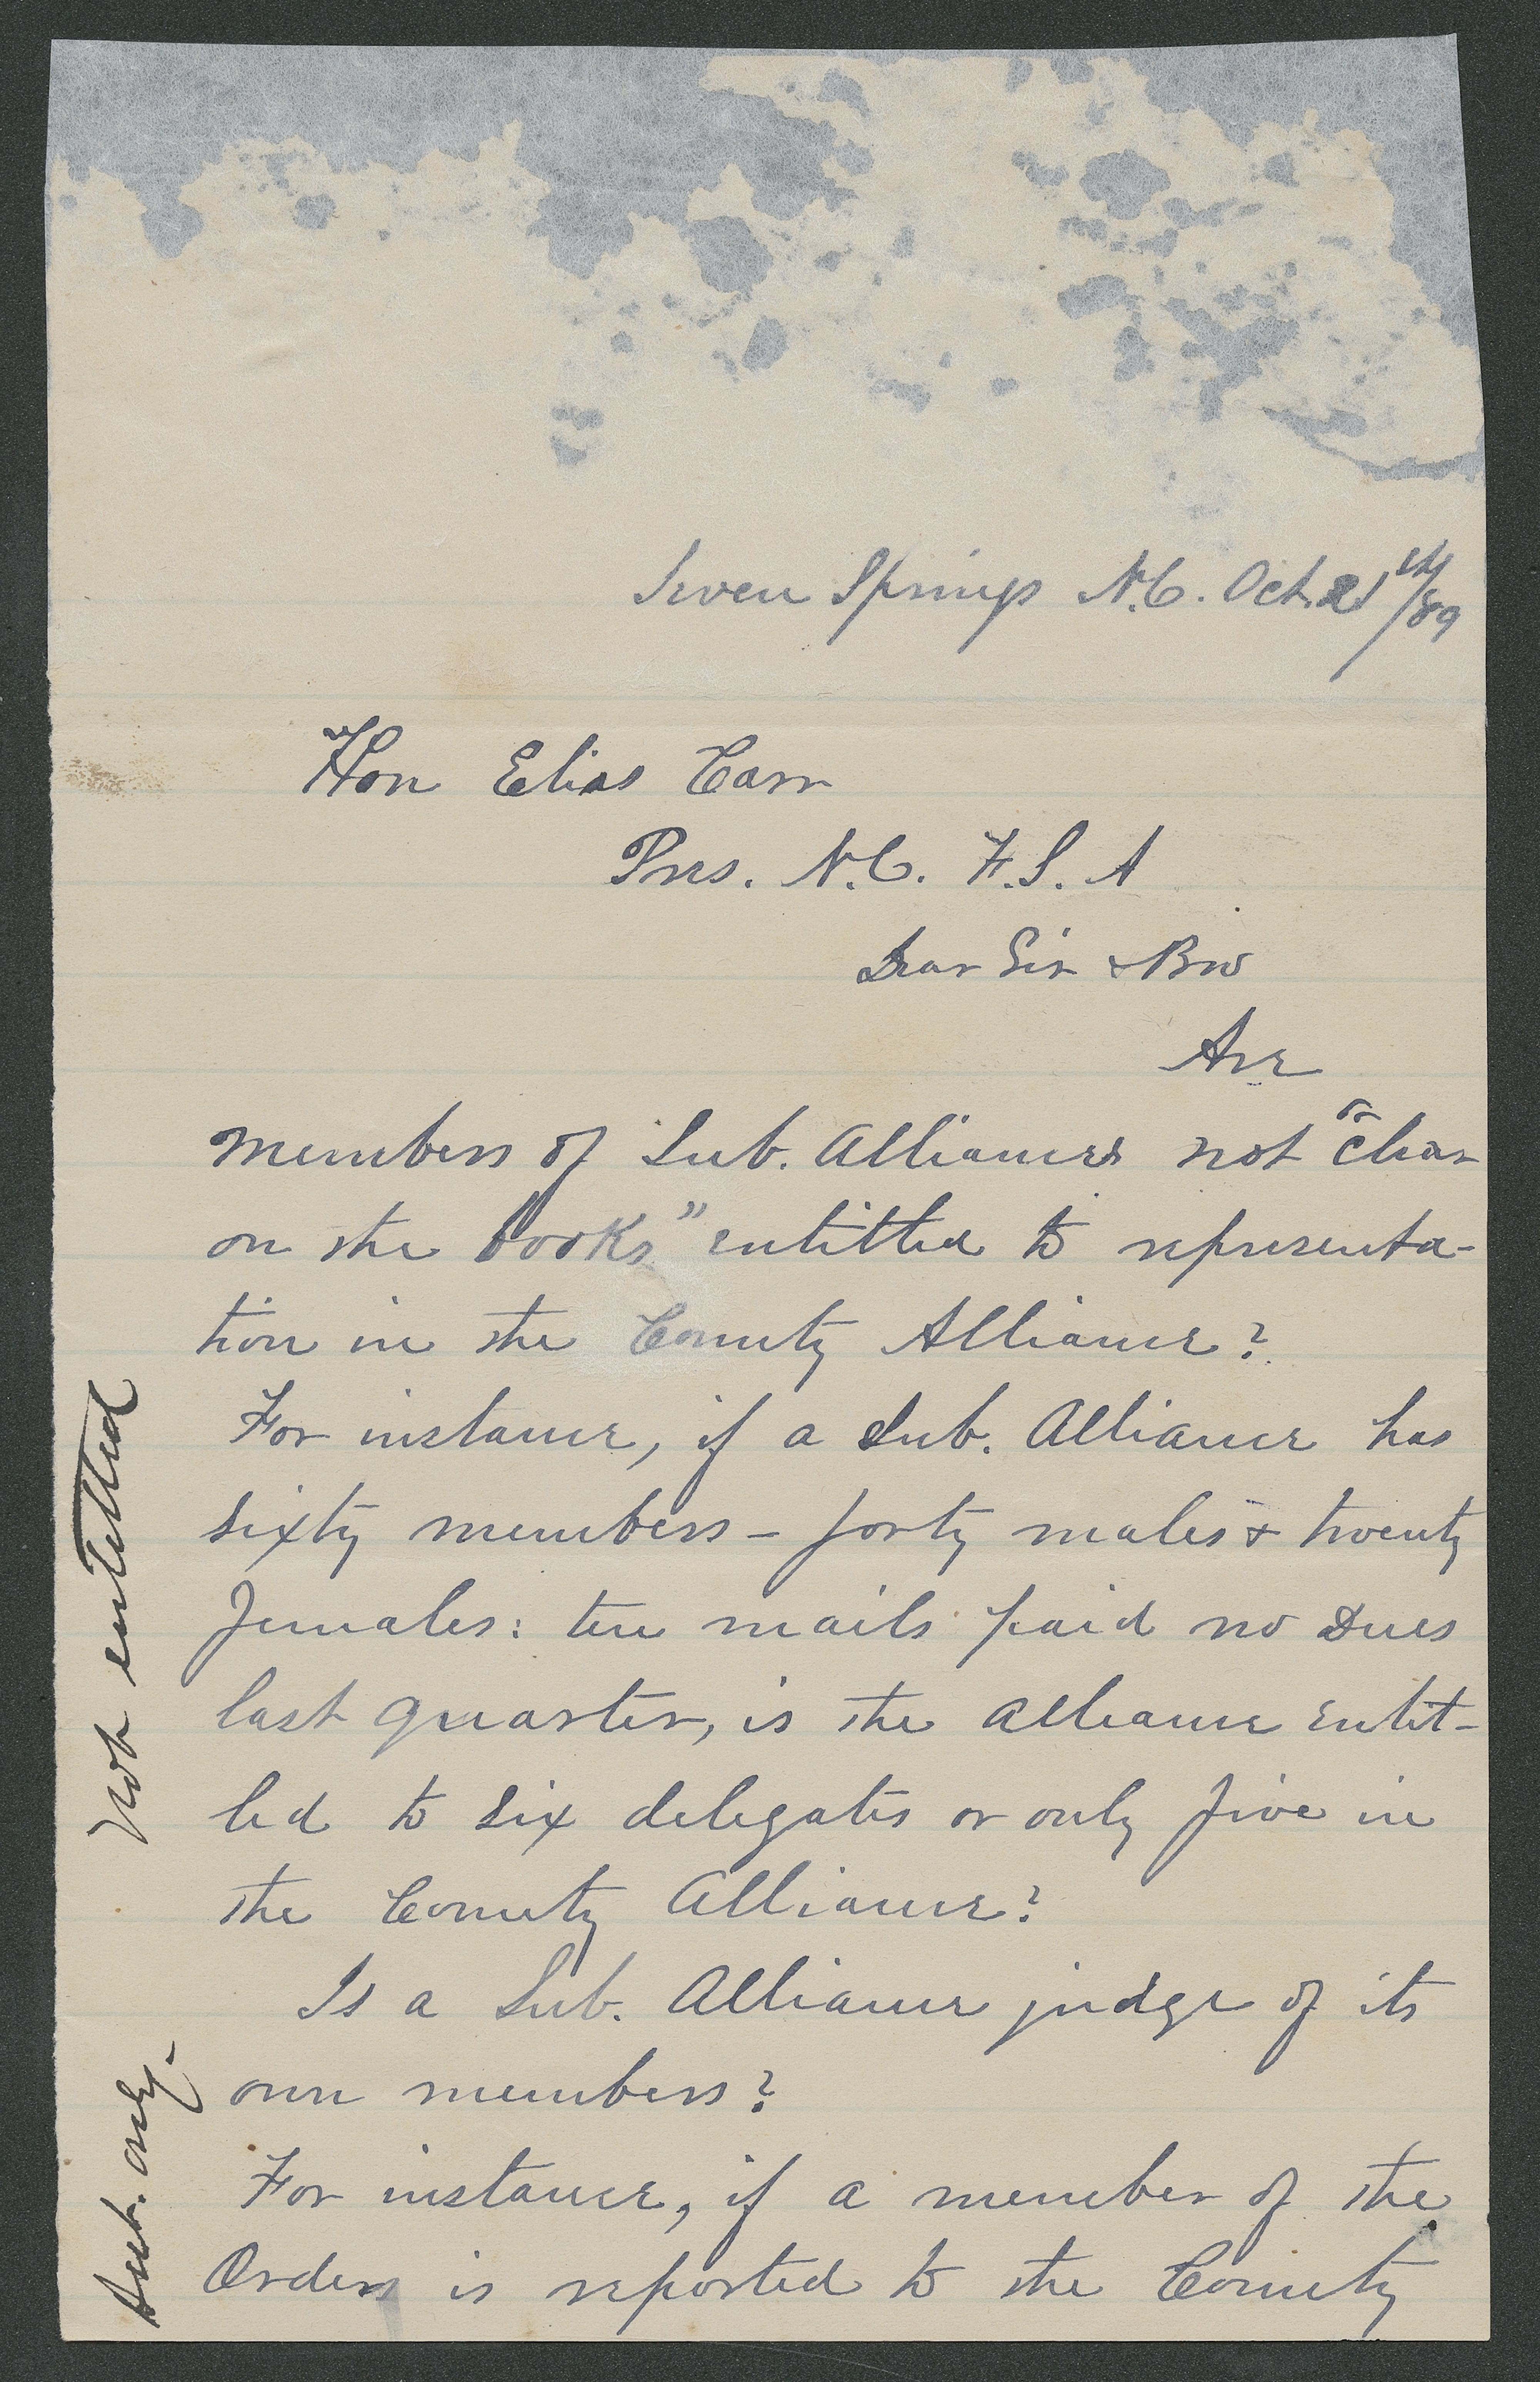 Seven Springs N.C. Oct. 21st/89
Hon Elias Carr
Pres. N.C. F.S.A
Dear Sir & Bro
Are
members of Sub. Alliances not "clear
on the books" entitled to representa-
tion in the County Alliance?
For instance, if a Sub. Alliance has
sixty members - forty males & twenty
females: ten mails paid no dues
last quarter, is the Alliance entit-
led to six delegates or only five in
the County Alliance?
Is a Sub. Alliance judge of its
own members?
For instance, if a member of the
Order is reported to the County
Not entitled
Sub. only-